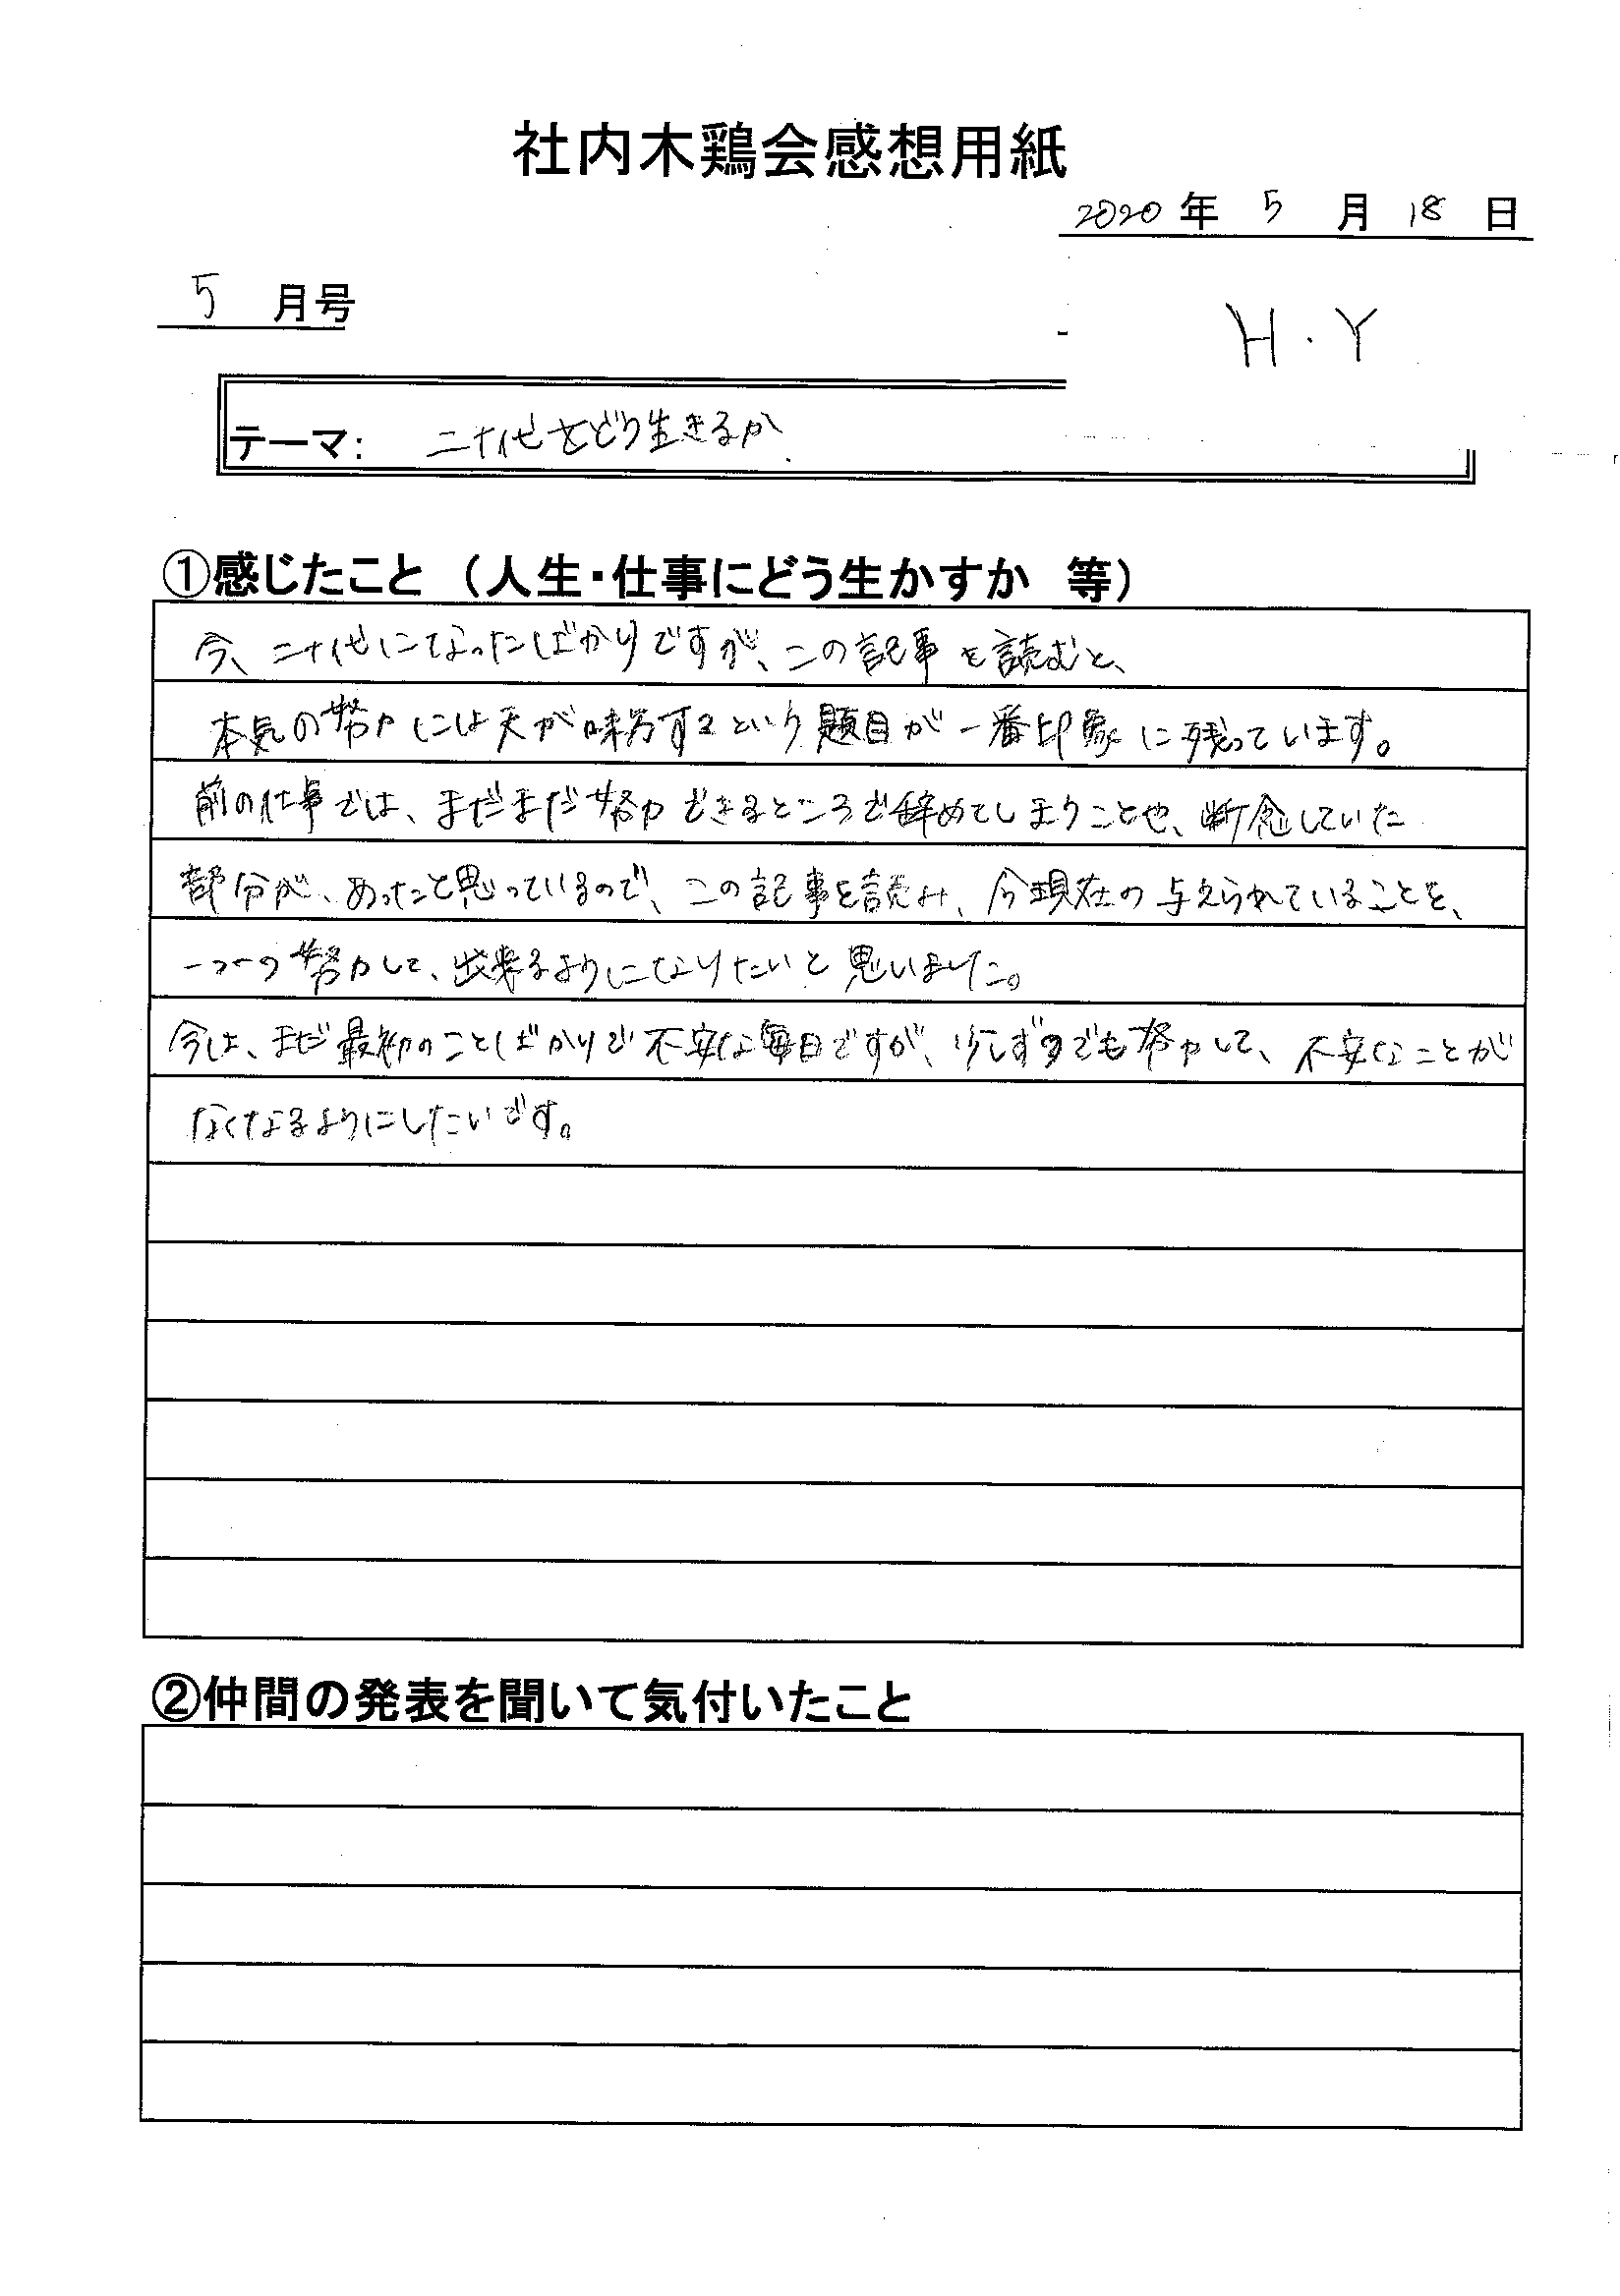 社内木鶏会感想用紙
2020 年 5 月 18 日
5 月号
H・Y
テーマ: 二十代をどう生きるか
①感じたこと（人生・仕事にどう生かすか 等）
今、二十代になったばかりですが、この記事を読むと、
本気の努力には天が味方するという題目が一番印象に残っています。
前の仕事では、まだまだ努力できるところで辞めてしまうことや、断念していた
部分が、あったと思っているので、この記事を読み、今現在の与えられていることを、
一つ一つ努力して、出来るようになりたいと思いました。
今は、まだ最初のことばかりで不安な毎日ですが、少しずつでも努力して、不安なことが
なくなるようにしたいです。
②仲間の発表を聞いて気付いたこと